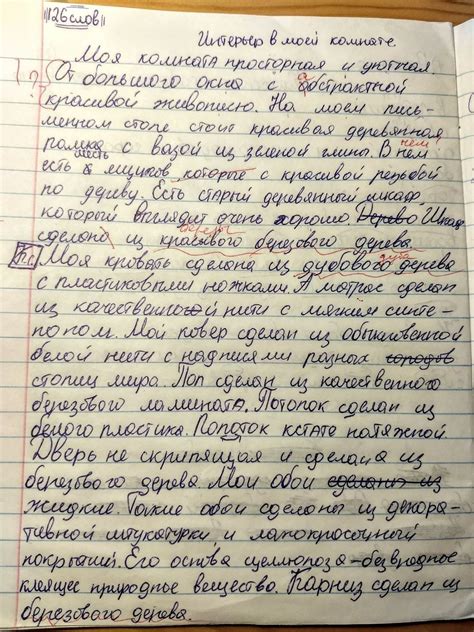 126слов
Интерьер в моей комнате.
Моя комната просторная и уютная.
От большого окна с абстрактной
красивой живописью. На моем пись-
менном столе стоит красивая деревянная
с вазой из зеленой глины. В нем
нём
есть шесть ящиков, которые с красивой резьбой
по дереву. Есть старый деревянный шкаф,
который выглядит очень хорошо. Дерево Шкаф
березы
сделан из красивого березового дерева.
Моя кровать сделана из дубового дерева
дуба
с пластиковыми ножками. А матрас сделан
из качественной нити с мягким синте-
поном. Мой ковер сделан из обыкновенной
белой нити с надписями разных городов
столиц мира. Пол сделан из качественного
березового ламината. Потолок сделан из
белого пластика. Потолок кстати натяжной.
Дверь не скрипящая и сделана из
дерева. Мои обои сделаны из
жидкие. Такие обои сделаны из декора-
тивной штукатурки, и
покрытий. Его основа целлюлоза-безвредное
клеящее природное вещество. Карниз сделан из
березового дерева.